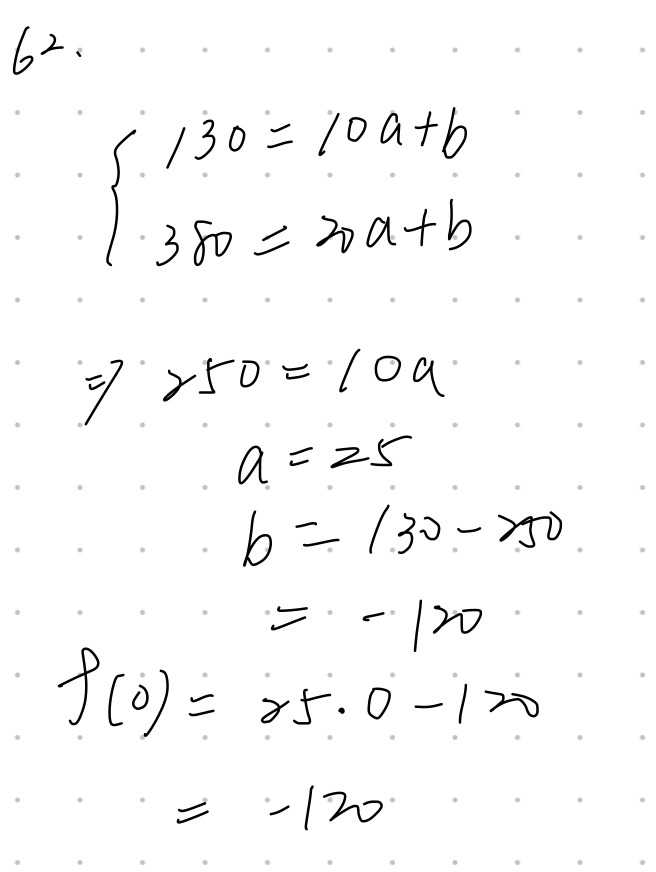 62.
130 = 10a+b
380 = 20a+b
⇒ 250 = 10a
a = 25
b = 130 - 250
= -120
f(0) = 25·0 - 120
= -120